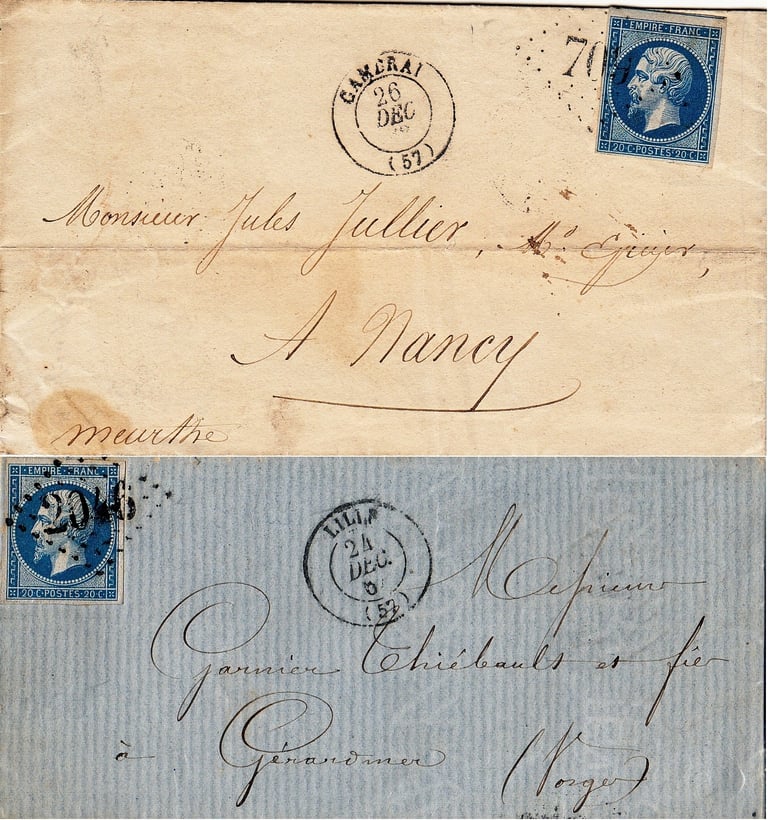 EMPIRE FRANC
20 C · POSTES · 20 C
709
CAMBRAI
26
DEC
(57)
Monsieur Jules Jullier,
A Nancy
meurthe
EMPIRE FRANC
20 C · POSTES · 20 C
2046
LILLE
24
DEC.
(57)
Messieurs
Garnier Thiébault et fils
à Gérardmer (Vosges)